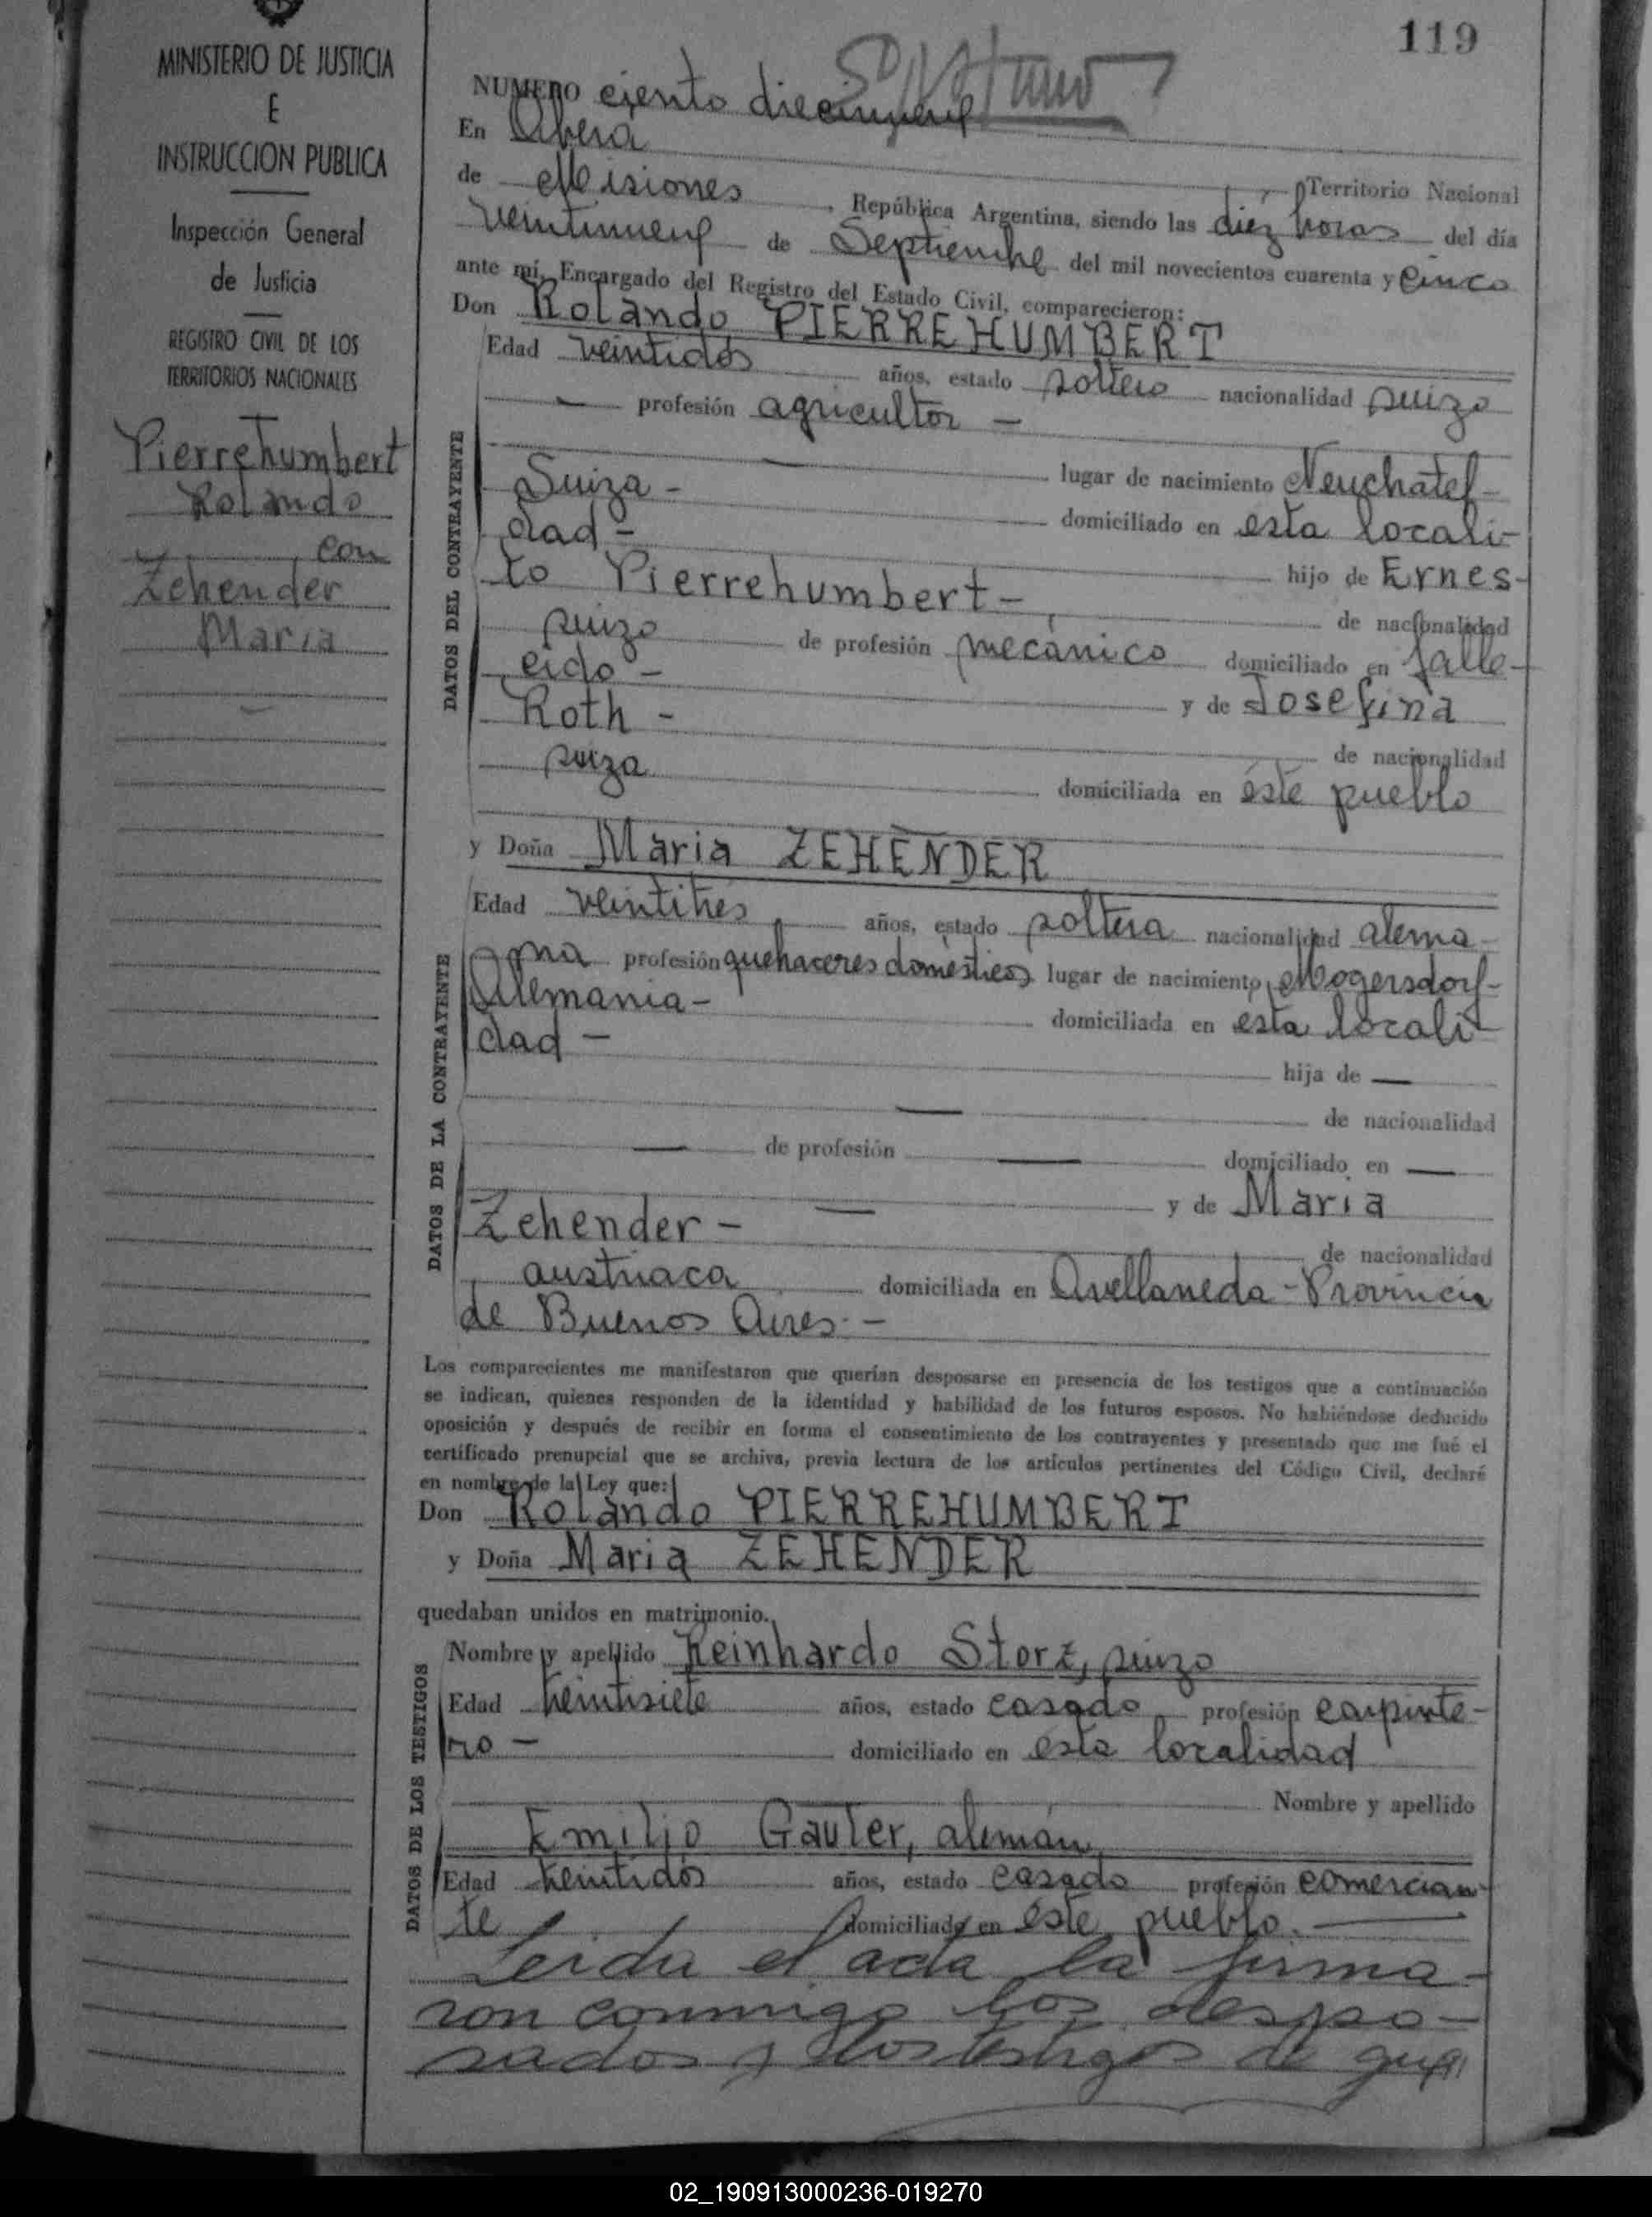 119
MINISTERIO DE JUSTICIA
E
INSTRUCCION PUBLICA
Inspección General
de Justicia
REGISTRO CIVIL DE LOS
TERRITORIOS NACIONALES
Pierrehumbert
Rolando
con
Zehender
Maria
NUMERO ciento diecinueve
En Oberá
Territorio Nacional
de Misiones República Argentina, siendo las diéz horas del día
veintinueve de Septiembre del mil novecientos cuarenta y cinco
ante mí, Encargado del Registro del Estado Civil, comparecieron:
Don Rolando PIERREHUMBERT
DATOS DEL CONTRAYENTE
Edad veintidós años, estado soltero nacionalidad suizo
— profesión agricultor —
— lugar de nacimiento Neuchatel-
Suiza - domiciliado en esta locali-
dad - hijo de Ernes-
to Pierrehumbert - de nacionalidad
suizo de profesión mecánico domiciliado en falle-
cido - y de Josefina
Roth - de nacionalidad
suiza domiciliada en éste pueblo
y Doña Maria ZEHENDER
DATOS DE LA CONTRAYENTE
Edad veintitrés años, estado soltera nacionalidad alema-
na profesión quehaceres domésticos lugar de nacimiento Mogersdorf-
Alemania - domiciliada en esta locali-
dad - hija de —
— de nacionalidad
— de profesión — domiciliado en —
— y de Maria
Zehender - de nacionalidad
austriaca domiciliada en Avellaneda - Provincia
de Buenos Aires. -
Los comparecientes me manifestaron que querían desposarse en presencia de los testigos que a continuación
se indican, quienes responden de la identidad y habilidad de los futuros esposos. No habiéndose deducido
oposición y después de recibir en forma el consentimiento de los contrayentes y presentado que me fué el
certificado prenupcial que se archiva, previa lectura de los artículos pertinentes del Código Civil, declaré
en nombre de la Ley que:
Don Rolando PIERREHUMBERT
y Doña Maria ZEHENDER
quedaban unidos en matrimonio.
DATOS DE LOS TESTIGOS
Nombre y apellido Reinhardo Storz, suizo
Edad veintisiete años, estado casado profesión carpinte-
ro - domiciliado en esta localidad
Nombre y apellido
Emilio Gauter, alemán
Edad veintidós años, estado casado profesión comercian-
te domiciliado en éste pueblo.
Leida el acta la firma-
ron conmigo los despo-
sados y los testigos de que
02_190913000236-019270